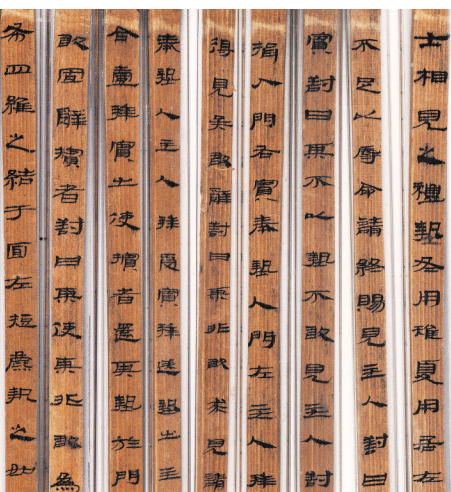 士相見之禮摯冬用雉夏用居左
不足以辱命請終賜見主人對曰
賓對曰某不以摯不敢見主人對
揖入門右賓奉摯入門左主人拜
得見矣敢辭對曰某非敢求見請
奉摯入主人拜受賓拜送摯出主
合壹拜賓出使擯者還其摯於門
敢固辭擯者對曰某使某非敢為
布四維之結于面左麋執之如